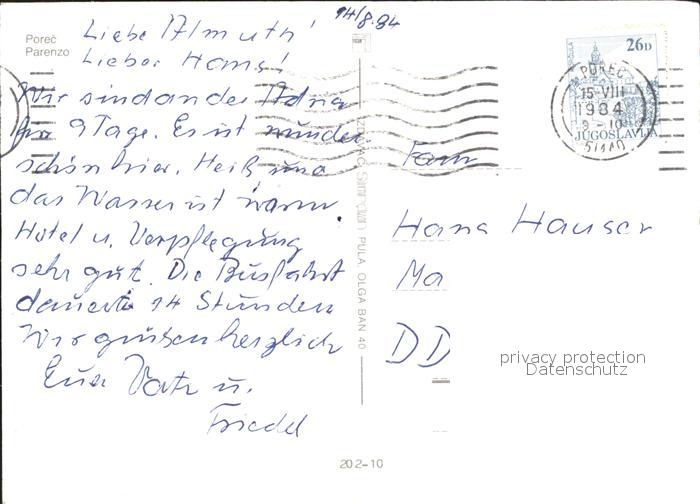 14/8.84
Poreč
Parenzo
Liebe Almuth!
Lieber Hans!
Wir sind an der Adria
für 9 Tage. Es ist wunder
schön hier. Heiß und
das Wasser ist warm.
Hotel u. Verpflegung
sehr gut. Die Busfahrt
dauerte 14 Stunden
Wir grüßen herzlich
Euer Vati u.
Friedel
26D
POREČ
15-VIII
1984
8-10
51440
JUGOSLAVIJA
Fam
Hans Hauser
Ma
DD
privacy protection
Datenschutz
PULA, OLGA BAN 40
202-10